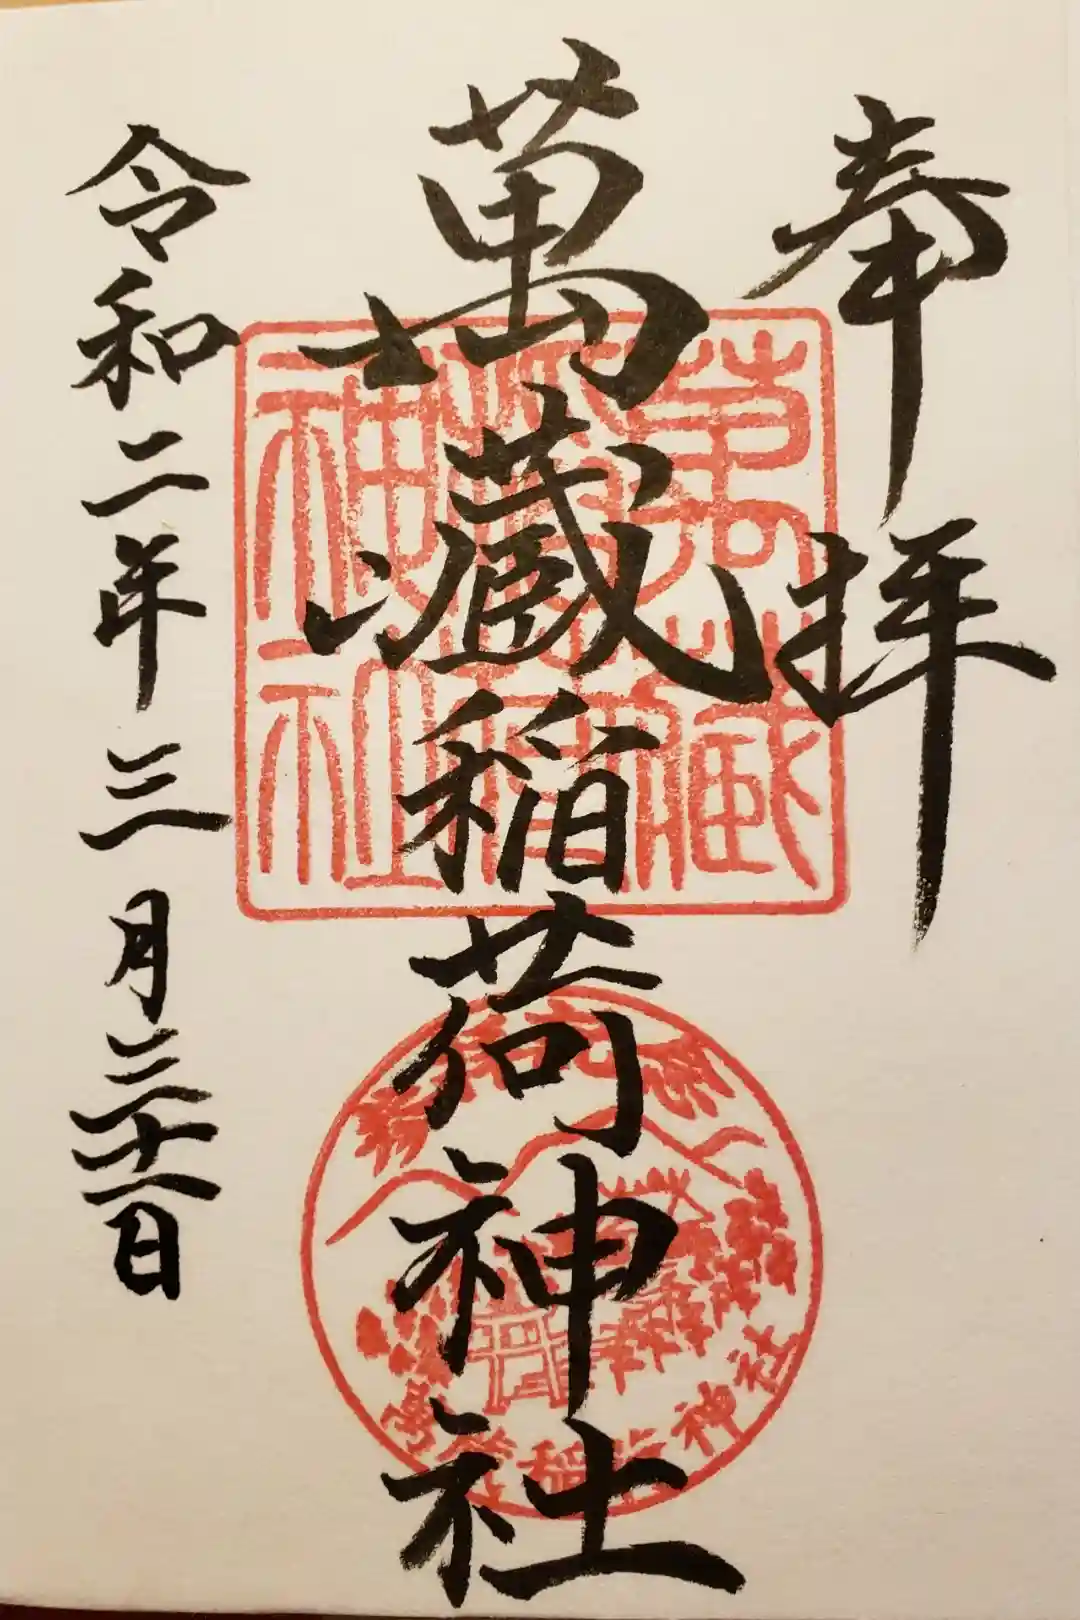 奉拝
萬蔵稲荷神社
令和二年三月三十一日
神社
萬蔵稲荷神社